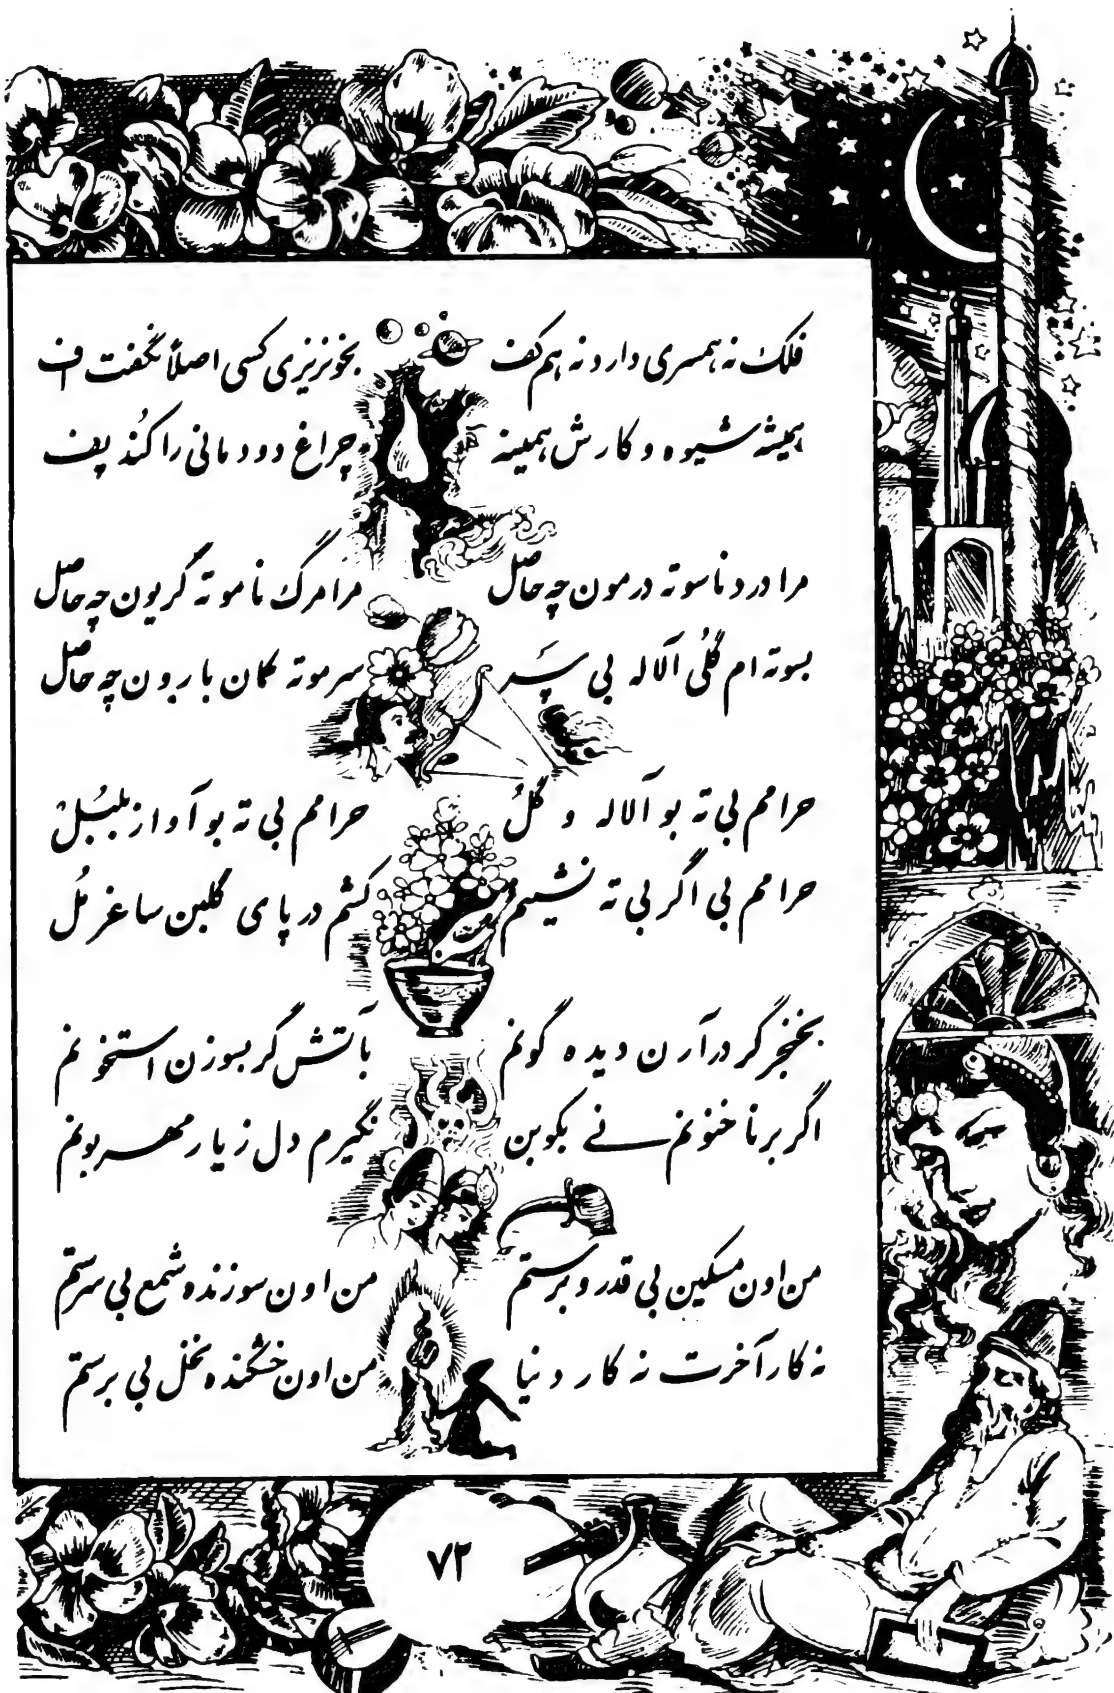 فلک نه همسری دارد نه هم کف بخونریزی کسی اصلاً نگفت اف
همیشه شیوه و کارش همینه چراغ دودمانی را کُند پف
مرا درد ناسوته درمون چه حاصل مرا مرگ ناموته گریون چه حاصل
بسوته ام گُلی آلاله بی پَر سرموته کمان بارون چه حاصل
حرامم بی ته بو آلاله و گلُ حرامم بی ته بو آواز بلبُلْ
حرامم بی اگر بی ته نشینم کشم در پای گلبن ساغر مُل
بخنجر گر درآرن دیده گونم بآتش گر بسوزن استخونم
اگر بر ناخنونم نے بکوبن نگیرم دل ز یار مهربونم
من اون مسکین بی قدر و برستم من اون سوزنده شمع بی سرستم
نه کار آخرت نه کار دنیا من اون خشکنده نخل بی برستم
۷۲